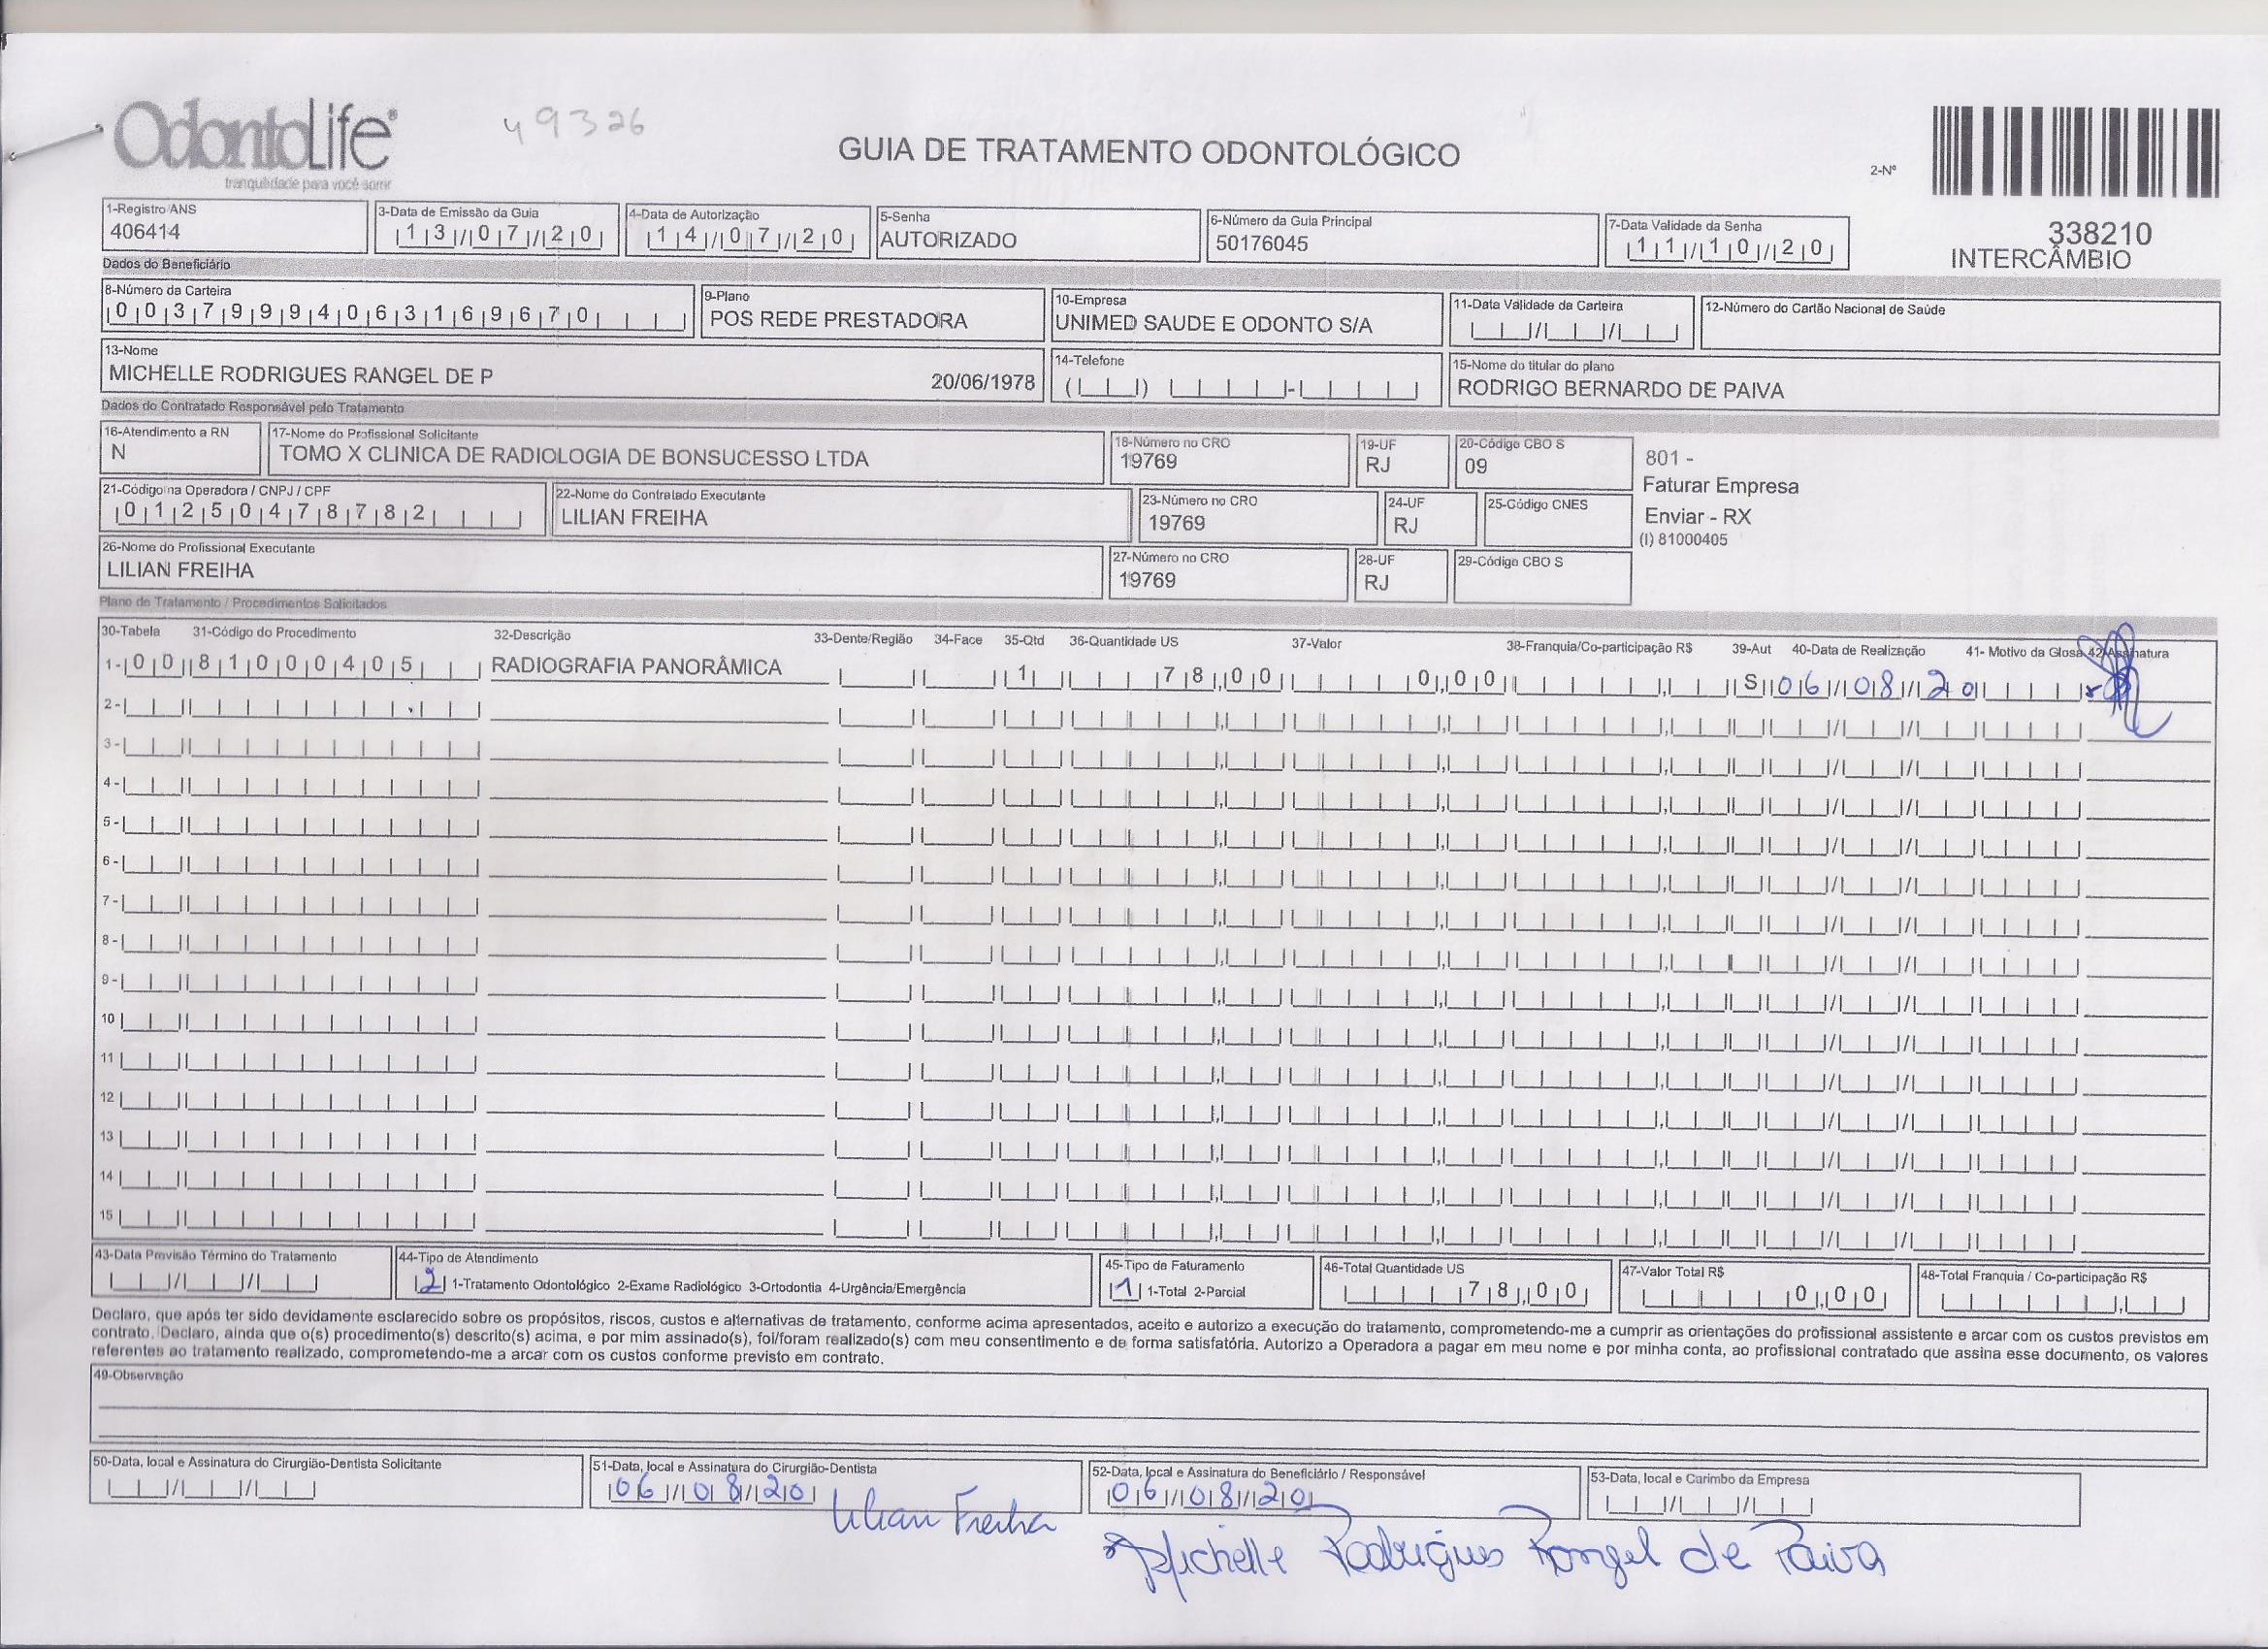 OdontoLife®
tranquilidade para você sorrir
49326
GUIA DE TRATAMENTO ODONTOLÓGICO
2-Nº
338210
INTERCÂMBIO
1-Registro ANS
406414
3-Data de Emissão da Guia
13/07/20
4-Data de Autorização
14/07/20
5-Senha
AUTORIZADO
6-Número da Guia Principal
50176045
7-Data Validade da Senha
11/10/20
Dados do Beneficiário
8-Número da Carteira
00379994063169670
9-Plano
POS REDE PRESTADORA
10-Empresa
UNIMED SAUDE E ODONTO S/A
11-Data Validade da Carteira
12-Número do Cartão Nacional de Saúde
13-Nome
MICHELLE RODRIGUES RANGEL DE P 20/06/1978
14-Telefone
15-Nome do titular do plano
RODRIGO BERNARDO DE PAIVA
Dados do Contratado Responsável pelo Tratamento
16-Atendimento a RN
N
17-Nome do Profissional Solicitante
TOMO X CLINICA DE RADIOLOGIA DE BONSUCESSO LTDA
18-Número no CRO
19769
19-UF
RJ
20-Código CBO S
09
801 -
Faturar Empresa
Enviar - RX
(I) 81000405
21-Código na Operadora / CNPJ / CPF
01250478782
22-Nome do Contratado Executante
LILIAN FREIHA
23-Número no CRO
19769
24-UF
RJ
25-Código CNES
26-Nome do Profissional Executante
LILIAN FREIHA
27-Número no CRO
19769
28-UF
RJ
29-Código CBO S
Plano de Tratamento / Procedimentos Solicitados
30-Tabela 31-Código do Procedimento 32-Descrição 33-Dente/Região 34-Face 35-Qtd 36-Quantidade US 37-Valor 38-Franquia/Co-participação R$ 39-Aut 40-Data de Realização 41- Motivo da Glosa 42-Assinatura
1- 00 81000405 RADIOGRAFIA PANORÂMICA 1 78,00 0,00 S 06/08/20
2-
3-
4-
5-
6-
7-
8-
9-
10
11
12
13
14
15
43-Data Previsão Término do Tratamento
44-Tipo de Atendimento
2 1-Tratamento Odontológico 2-Exame Radiológico 3-Ortodontia 4-Urgência/Emergência
45-Tipo de Faturamento
1 1-Total 2-Parcial
46-Total Quantidade US
78,00
47-Valor Total R$
0,00
48-Total Franquia / Co-participação R$
Declaro, que após ter sido devidamente esclarecido sobre os propósitos, riscos, custos e alternativas de tratamento, conforme acima apresentados, aceito e autorizo a execução do tratamento, comprometendo-me a cumprir as orientações do profissional assistente e arcar com os custos previstos em
contrato. Declaro, ainda que o(s) procedimento(s) descrito(s) acima, e por mim assinado(s), foi/foram realizado(s) com meu consentimento e de forma satisfatória. Autorizo a Operadora a pagar em meu nome e por minha conta, ao profissional contratado que assina esse documento, os valores
referentes ao tratamento realizado, comprometendo-me a arcar com os custos conforme previsto em contrato.
49-Observação
50-Data, local e Assinatura do Cirurgião-Dentista Solicitante
51-Data, local e Assinatura do Cirurgião-Dentista
06/08/20
Lilian Freiha
52-Data, local e Assinatura do Beneficiário / Responsável
06/08/20
Michelle Rodrigues Rangel de Paiva
53-Data, local e Carimbo da Empresa